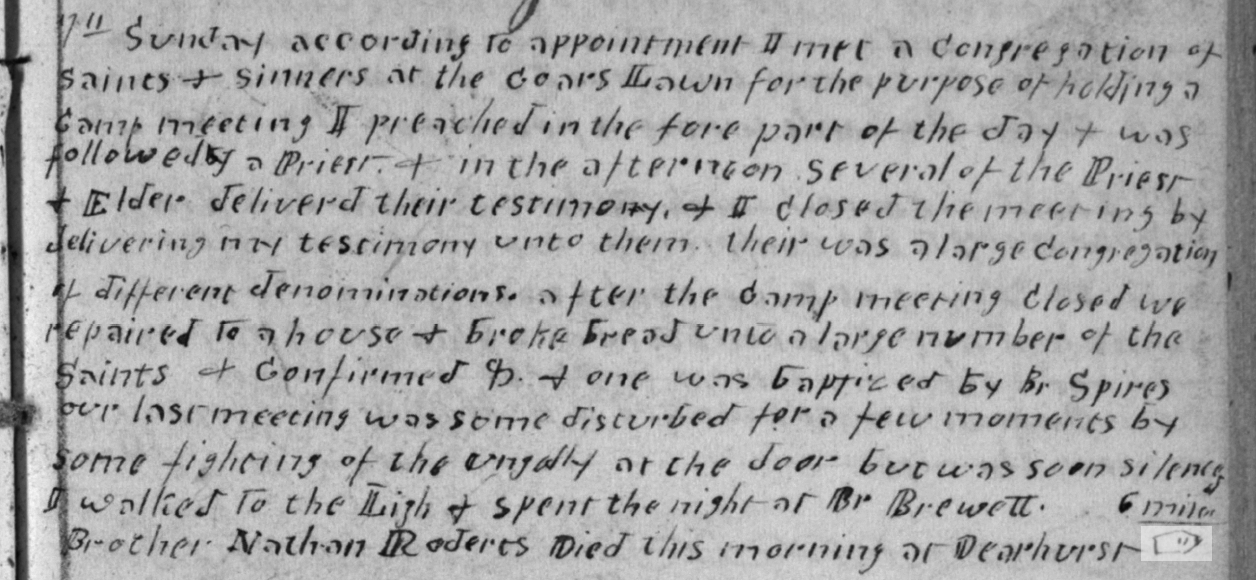 Sunday according to appointment I met a congregation of
Saints & sinners at the Goars Lawn for the purpose of holding a
Camp meeting I preached in the fore part of the day & was
followed by a Priest. & in the afternoon several of the Priest
& Elder deliverd their testimony. & I closed the meeting by
delivering my testimony unto them. their was a large congregation
of different denominations. after the camp meeting closed we
repaired to a house & broke bread unto a large number of the
Saints & Confirmed & one was baptized by Br Spires
our last meeting was some disturbed for a few moments by
some fighting of the ungodly at the door but was soon
I walked to the Ligh & spent the night at Br Brewett. 6
Brother Nathan Roberts Died this morning at Dearhurst